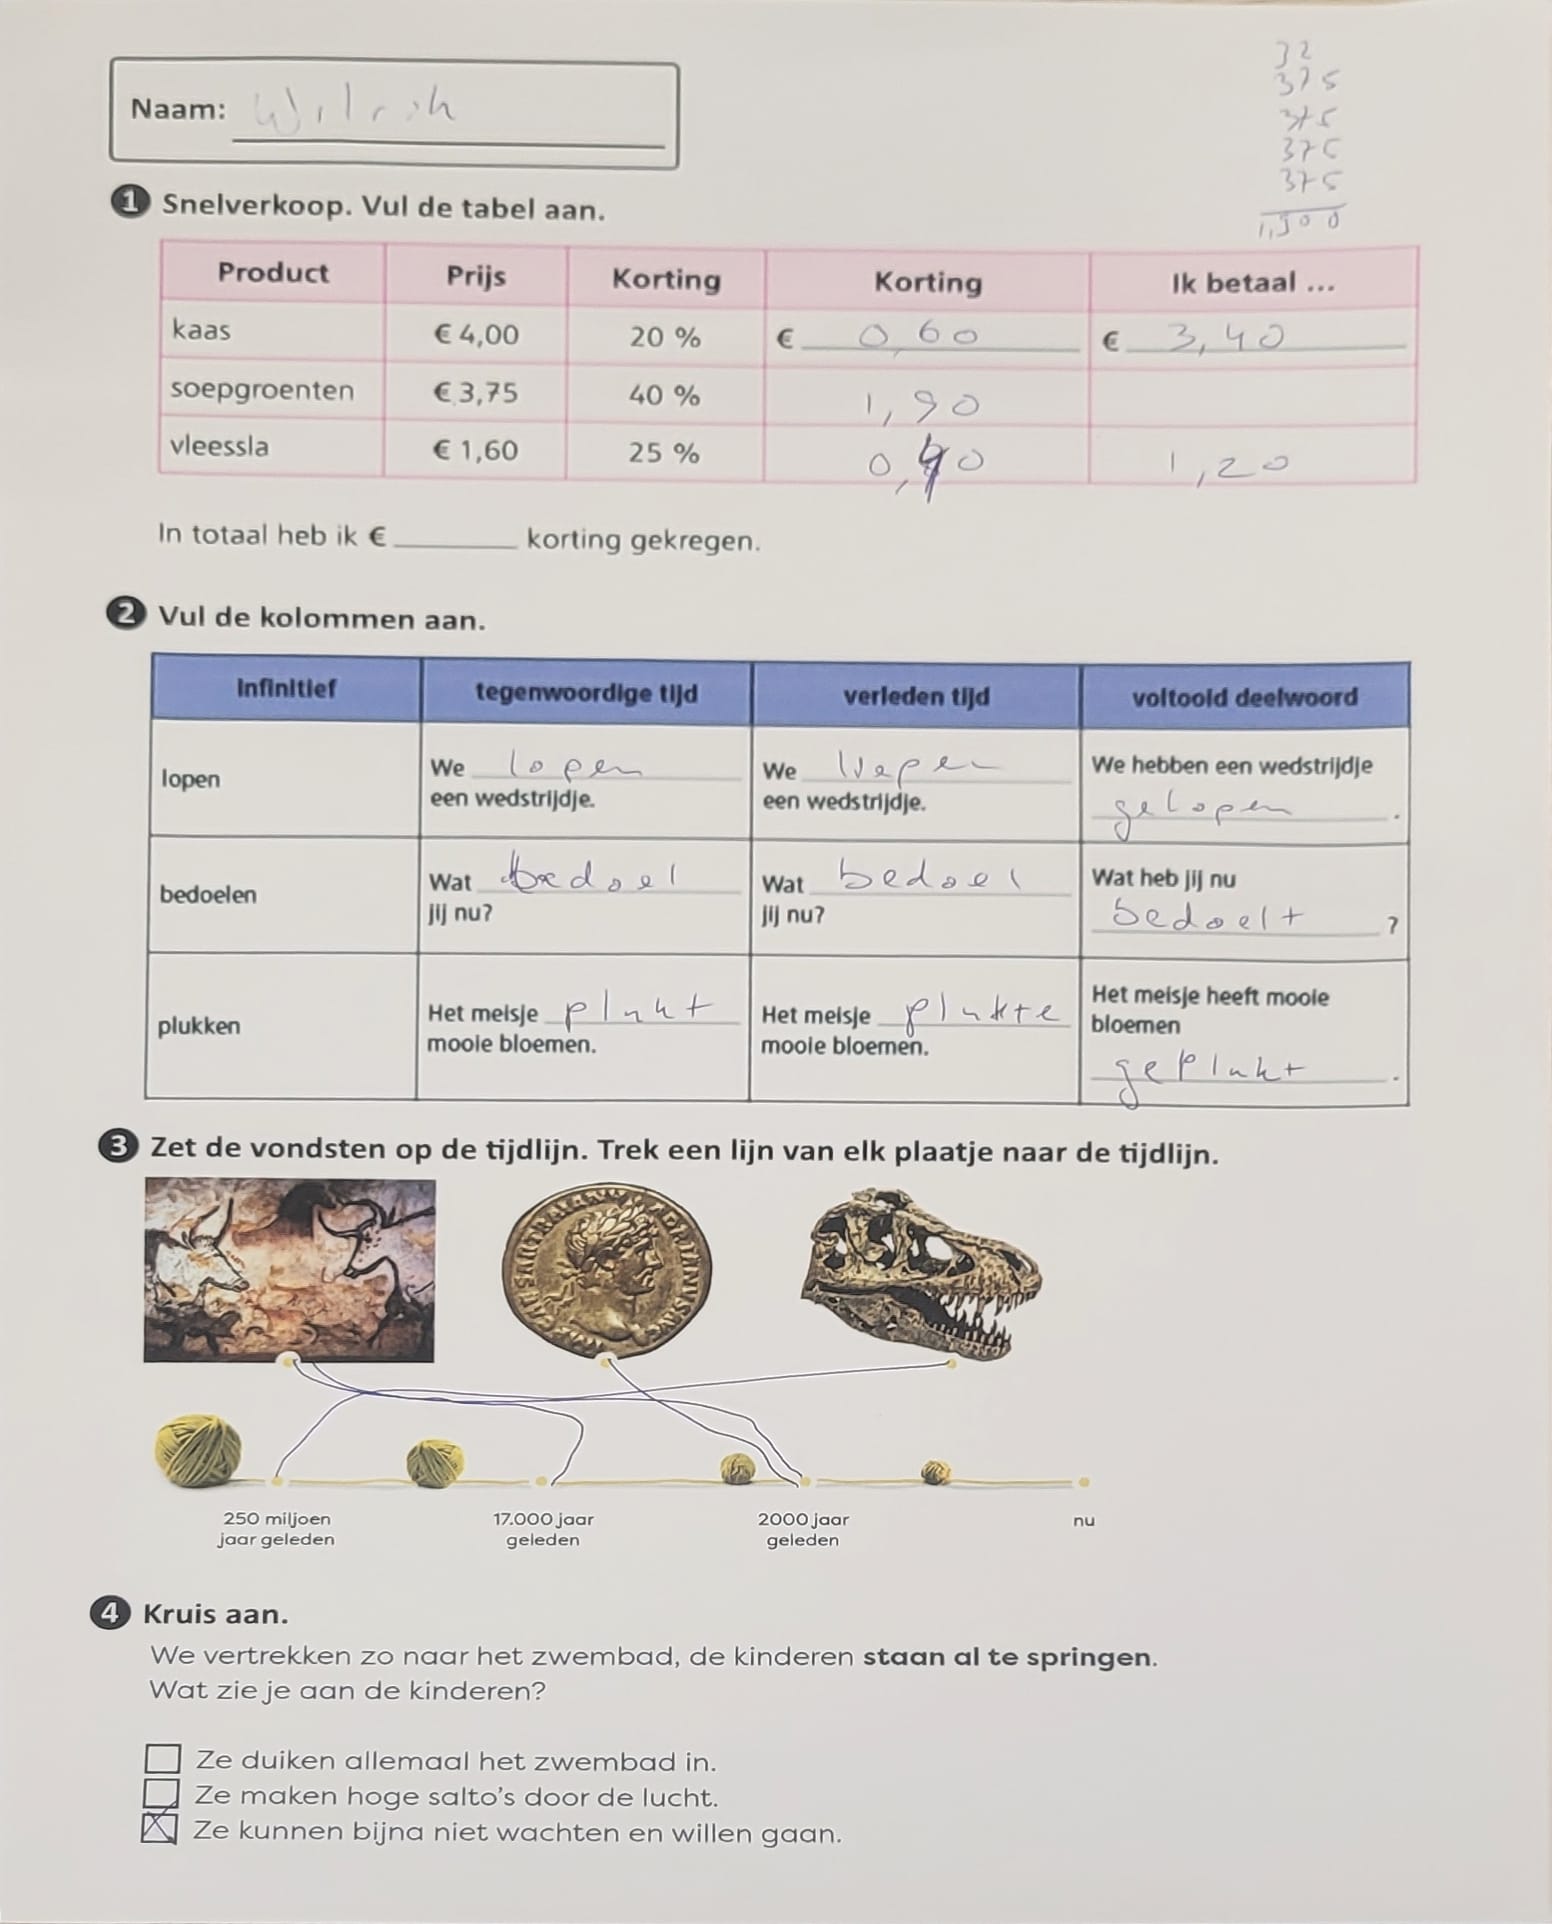 32
375
375
375
375
1,500
Naam:
1 Snelverkoop. Vul de tabel aan.
Product Prijs Korting Korting Ik betaal ...
kaas € 4,00 20 % € 0,60 € 3,40
soepgroenten € 3,75 40 % 1,90
vleessla € 1,60 25 % 0,40 1,20
In totaal heb ik € ________ korting gekregen.
2 Vul de kolommen aan.
infinitief tegenwoordige tijd verleden tijd voltooid deelwoord
lopen
We lopen
een wedstrijdje.
We liepen
een wedstrijdje.
We hebben een wedstrijdje
gelopen.
bedoelen
Wat bedoel
jij nu?
Wat bedoel
jij nu?
Wat heb jij nu
bedoelt ?
plukken
Het meisje plukt
mooie bloemen.
Het meisje plukte
mooie bloemen.
Het meisje heeft mooie
bloemen
geplukt.
3 Zet de vondsten op de tijdlijn. Trek een lijn van elk plaatje naar de tijdlijn.
250 miljoen
jaar geleden
17.000 jaar
geleden
2000 jaar
geleden
nu
4 Kruis aan.
We vertrekken zo naar het zwembad, de kinderen staan al te springen.
Wat zie je aan de kinderen?
Ze duiken allemaal het zwembad in.
Ze maken hoge salto's door de lucht.
Ze kunnen bijna niet wachten en willen gaan.